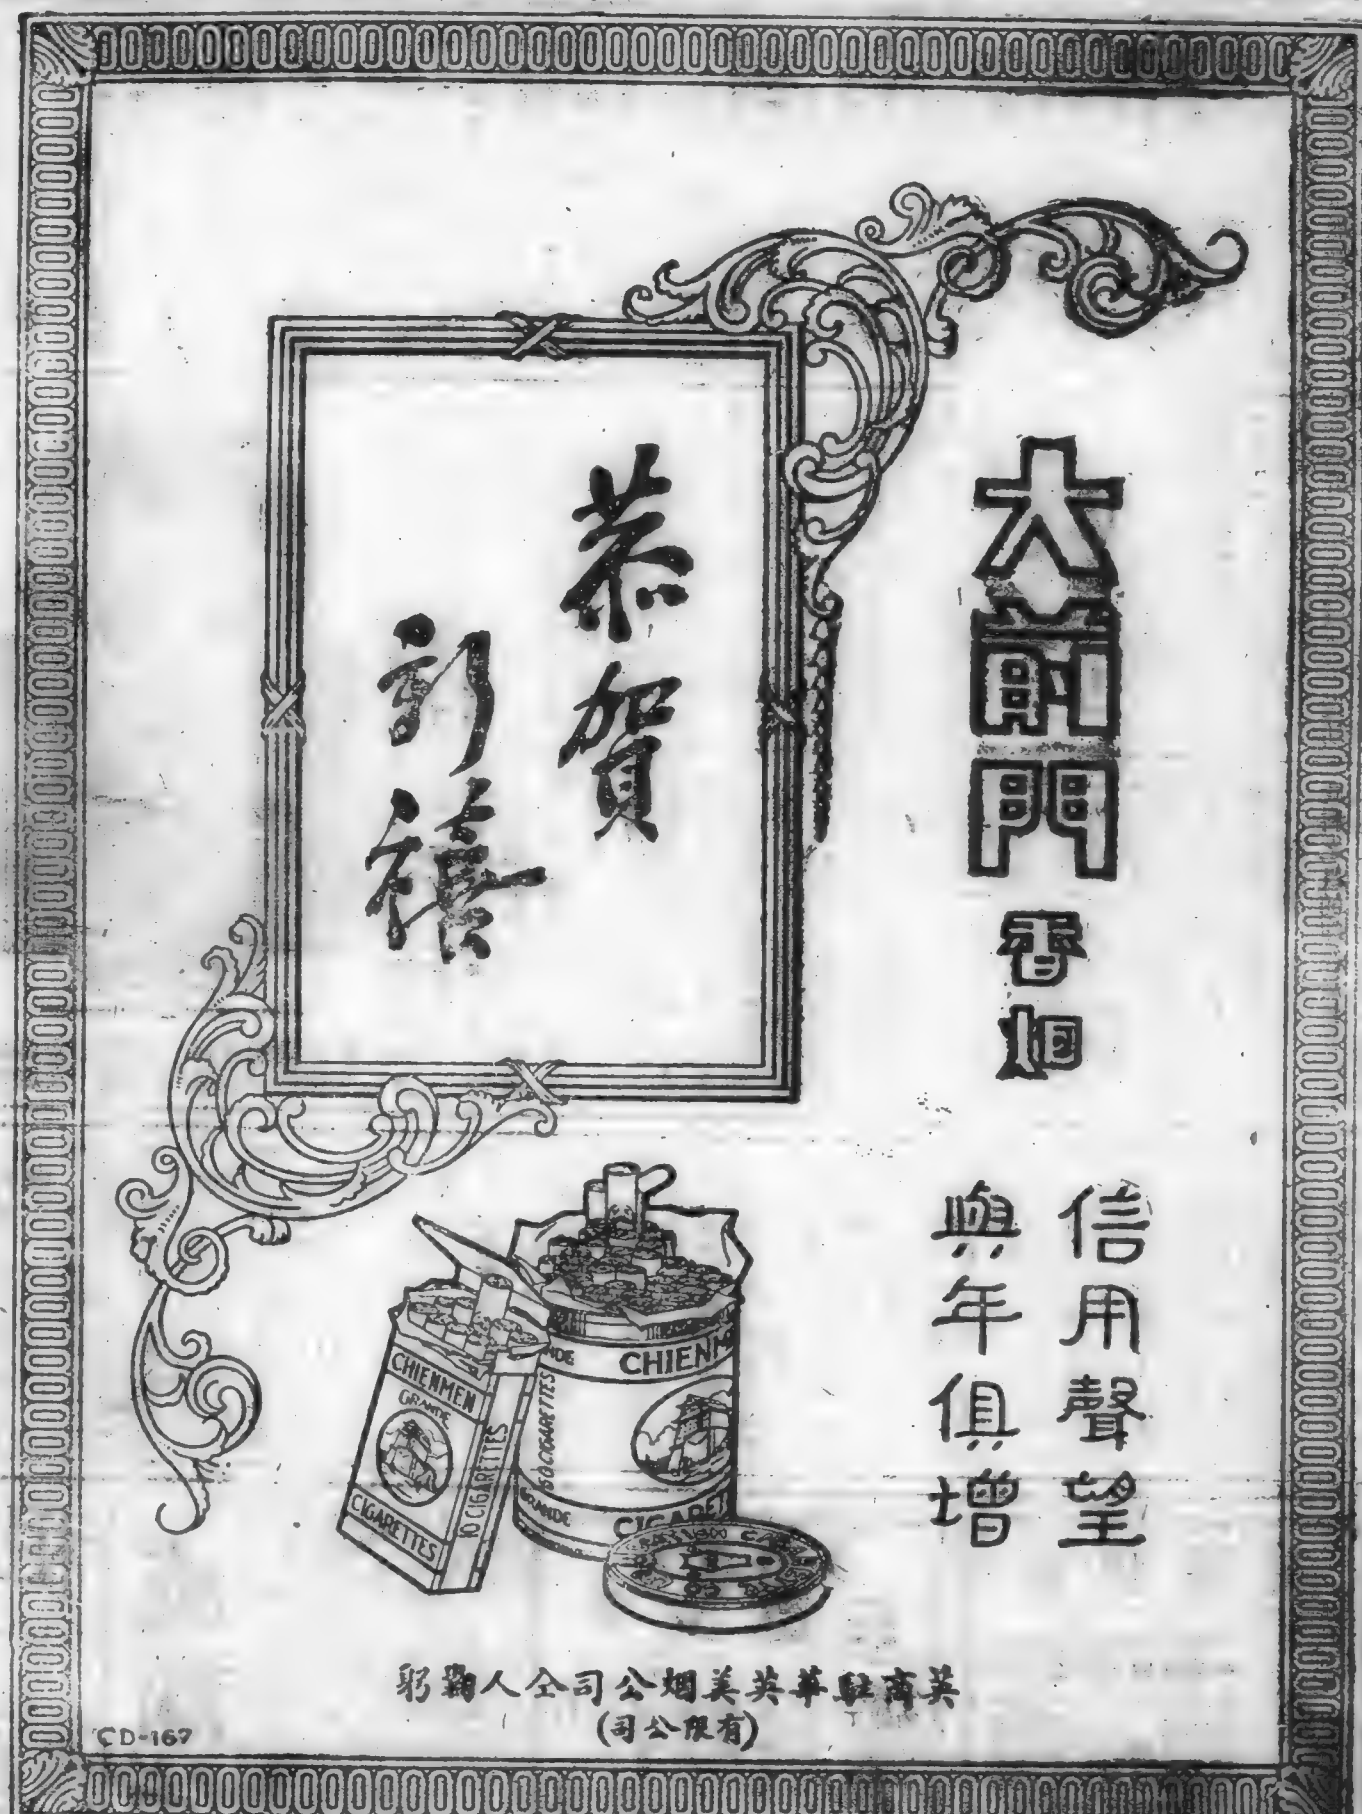 大前門
香烟
信用聲望
與年俱增
恭賀
新禧
CHIENMEN
GRANDE
CIGARETTES
10 CIGARETTES
CHIENM
50 CIGARETTES
GRANDE
CIGARET
英商駐華英美烟公司仝人鞠躬
(有限公司)
CD-167